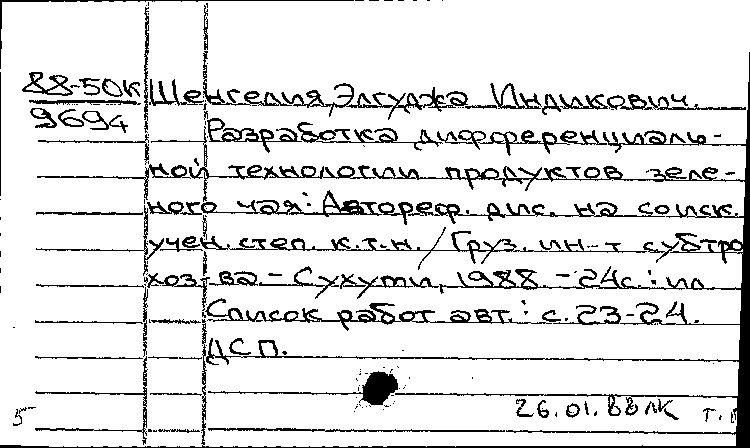 88-50К Шенгелия, Элгуджа Индикович.
9694 Разработка дифференциаль-
ной технологии продуктов зеле-
ного чая: Автореф. дис. на соиск.
учен. степ. к.т.н. / Груз. ин-т субтро
хоз-ва. - Сухуми, 1988. - 24с.: ил
Список работ авт.: с. 23-24.
ДСП.
5 26.01.88 ЛК т.